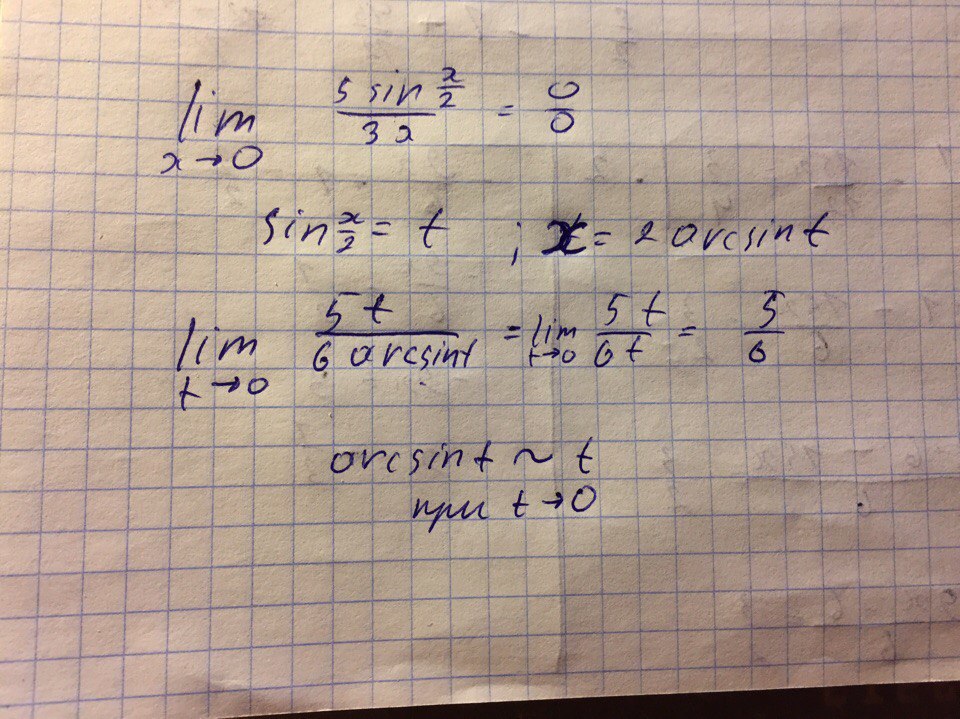 lim x→0 5 sin x/2 / 3x = 0/0
sin x/2 = t ; x = 2 arcsin t
lim t→0 5t / 6 arcsin t = lim t→0 5t / 6t = 5/6
arcsin t ~ t
при t→0